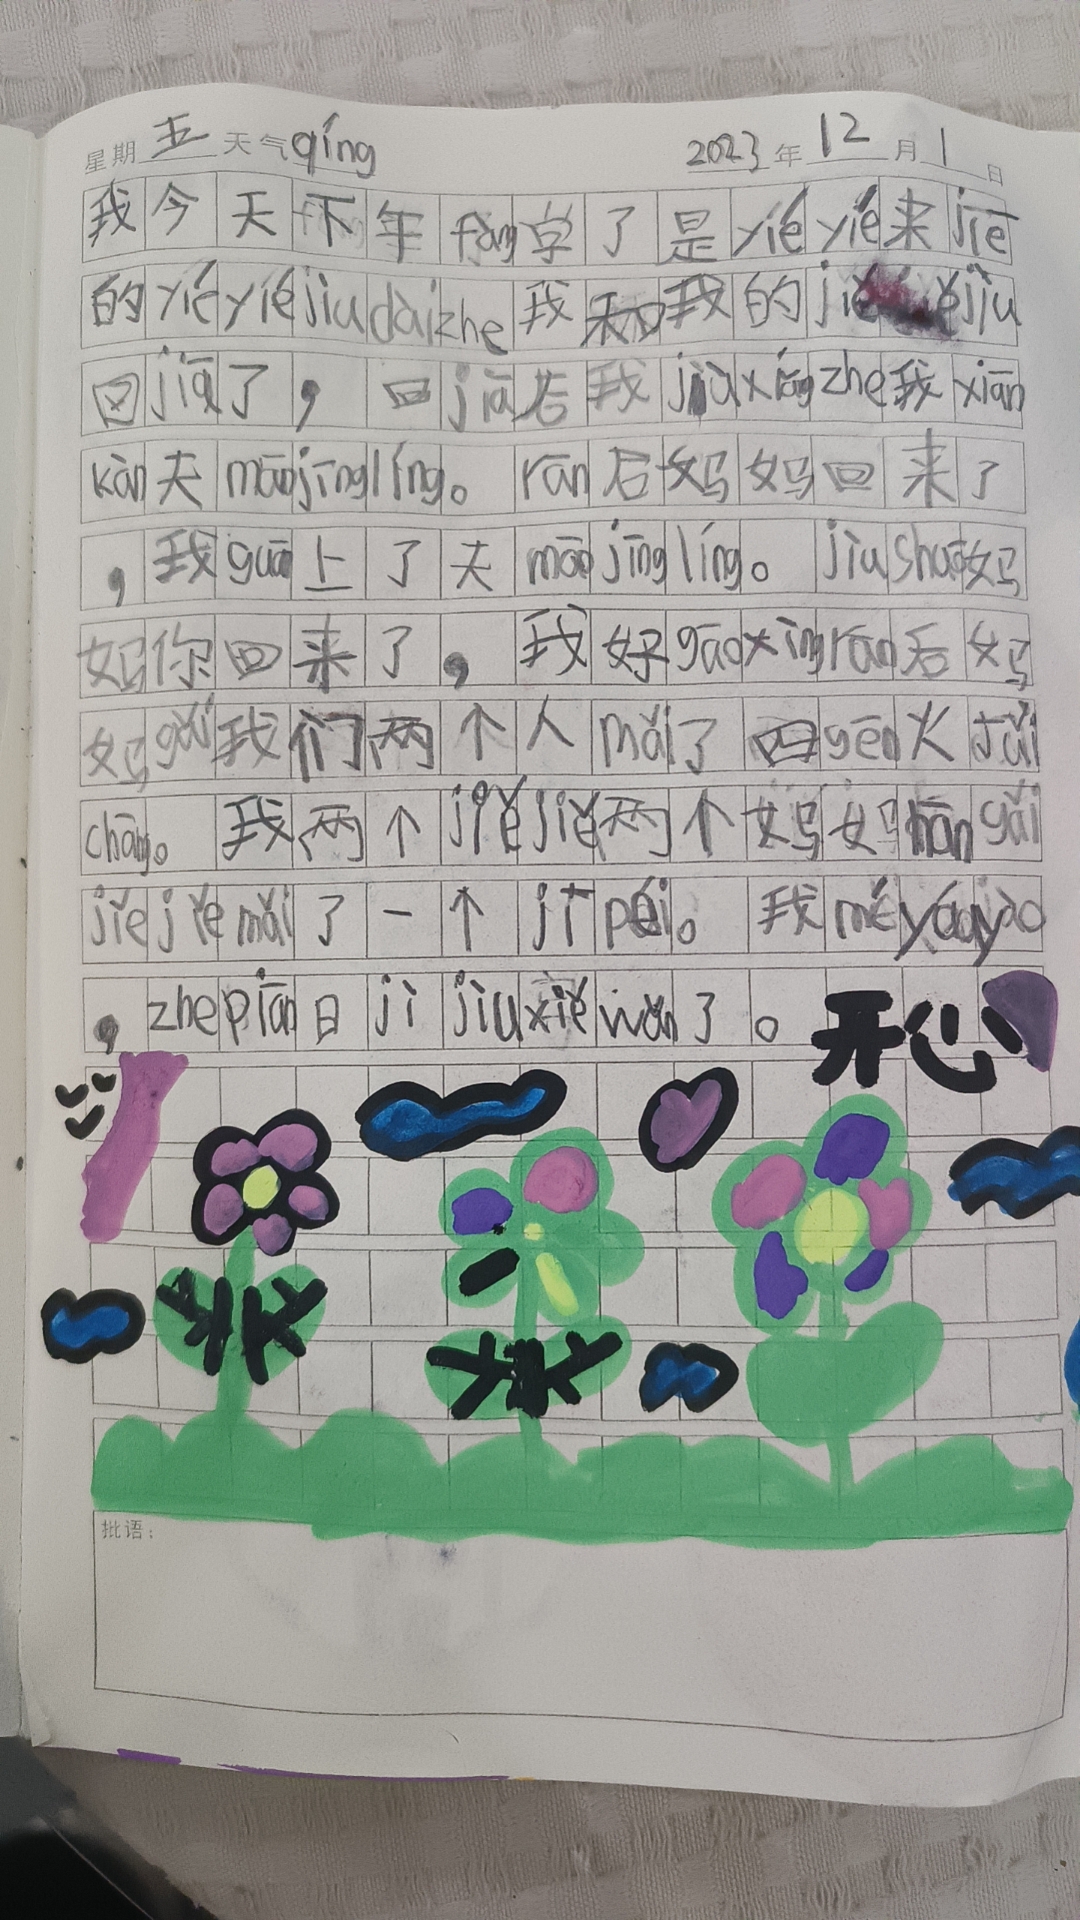 星期五天气qíng 2023年12月1日
我今天下年fàng学了是yiéyié来jiē
的yiéyiéjiudàizhe我和我的jiějiu
回jiā了，回jiā后我jiùxíngzhe我xiān
kàn夫māojīnglíng。rán后妈妈回来了
，我guān上了夫māojīnglíng。jiùshuō妈
妈你回来了，我好gāoxìngrán后妈
妈gǎi我们两个人mǎi了四gēn火tuǐ
cháng。我两个jiějiě两个妈妈hángǎi
jiějiěmǎi了一个jīpái。我méyóuyào
，zhepiān日jìjiùxiěwán了。开心
批语：